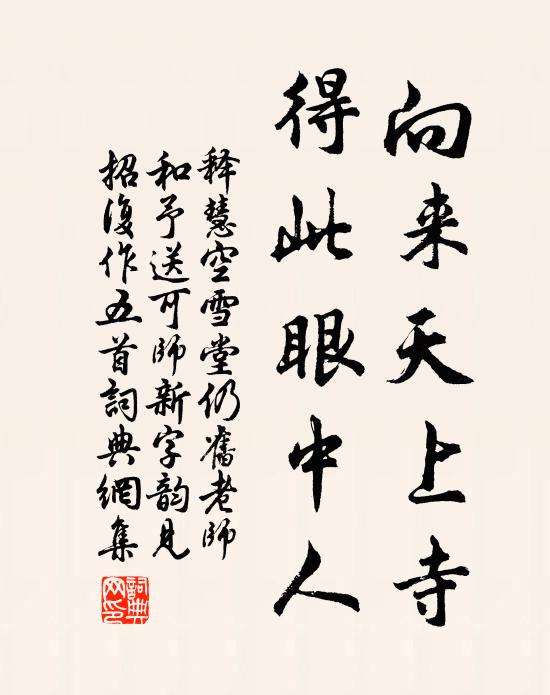 向来天上寺
得此眼中人
释慧空雪堂仍旧老师
和予送可师新字韵见
招复作五首詞典網集
詞典网印